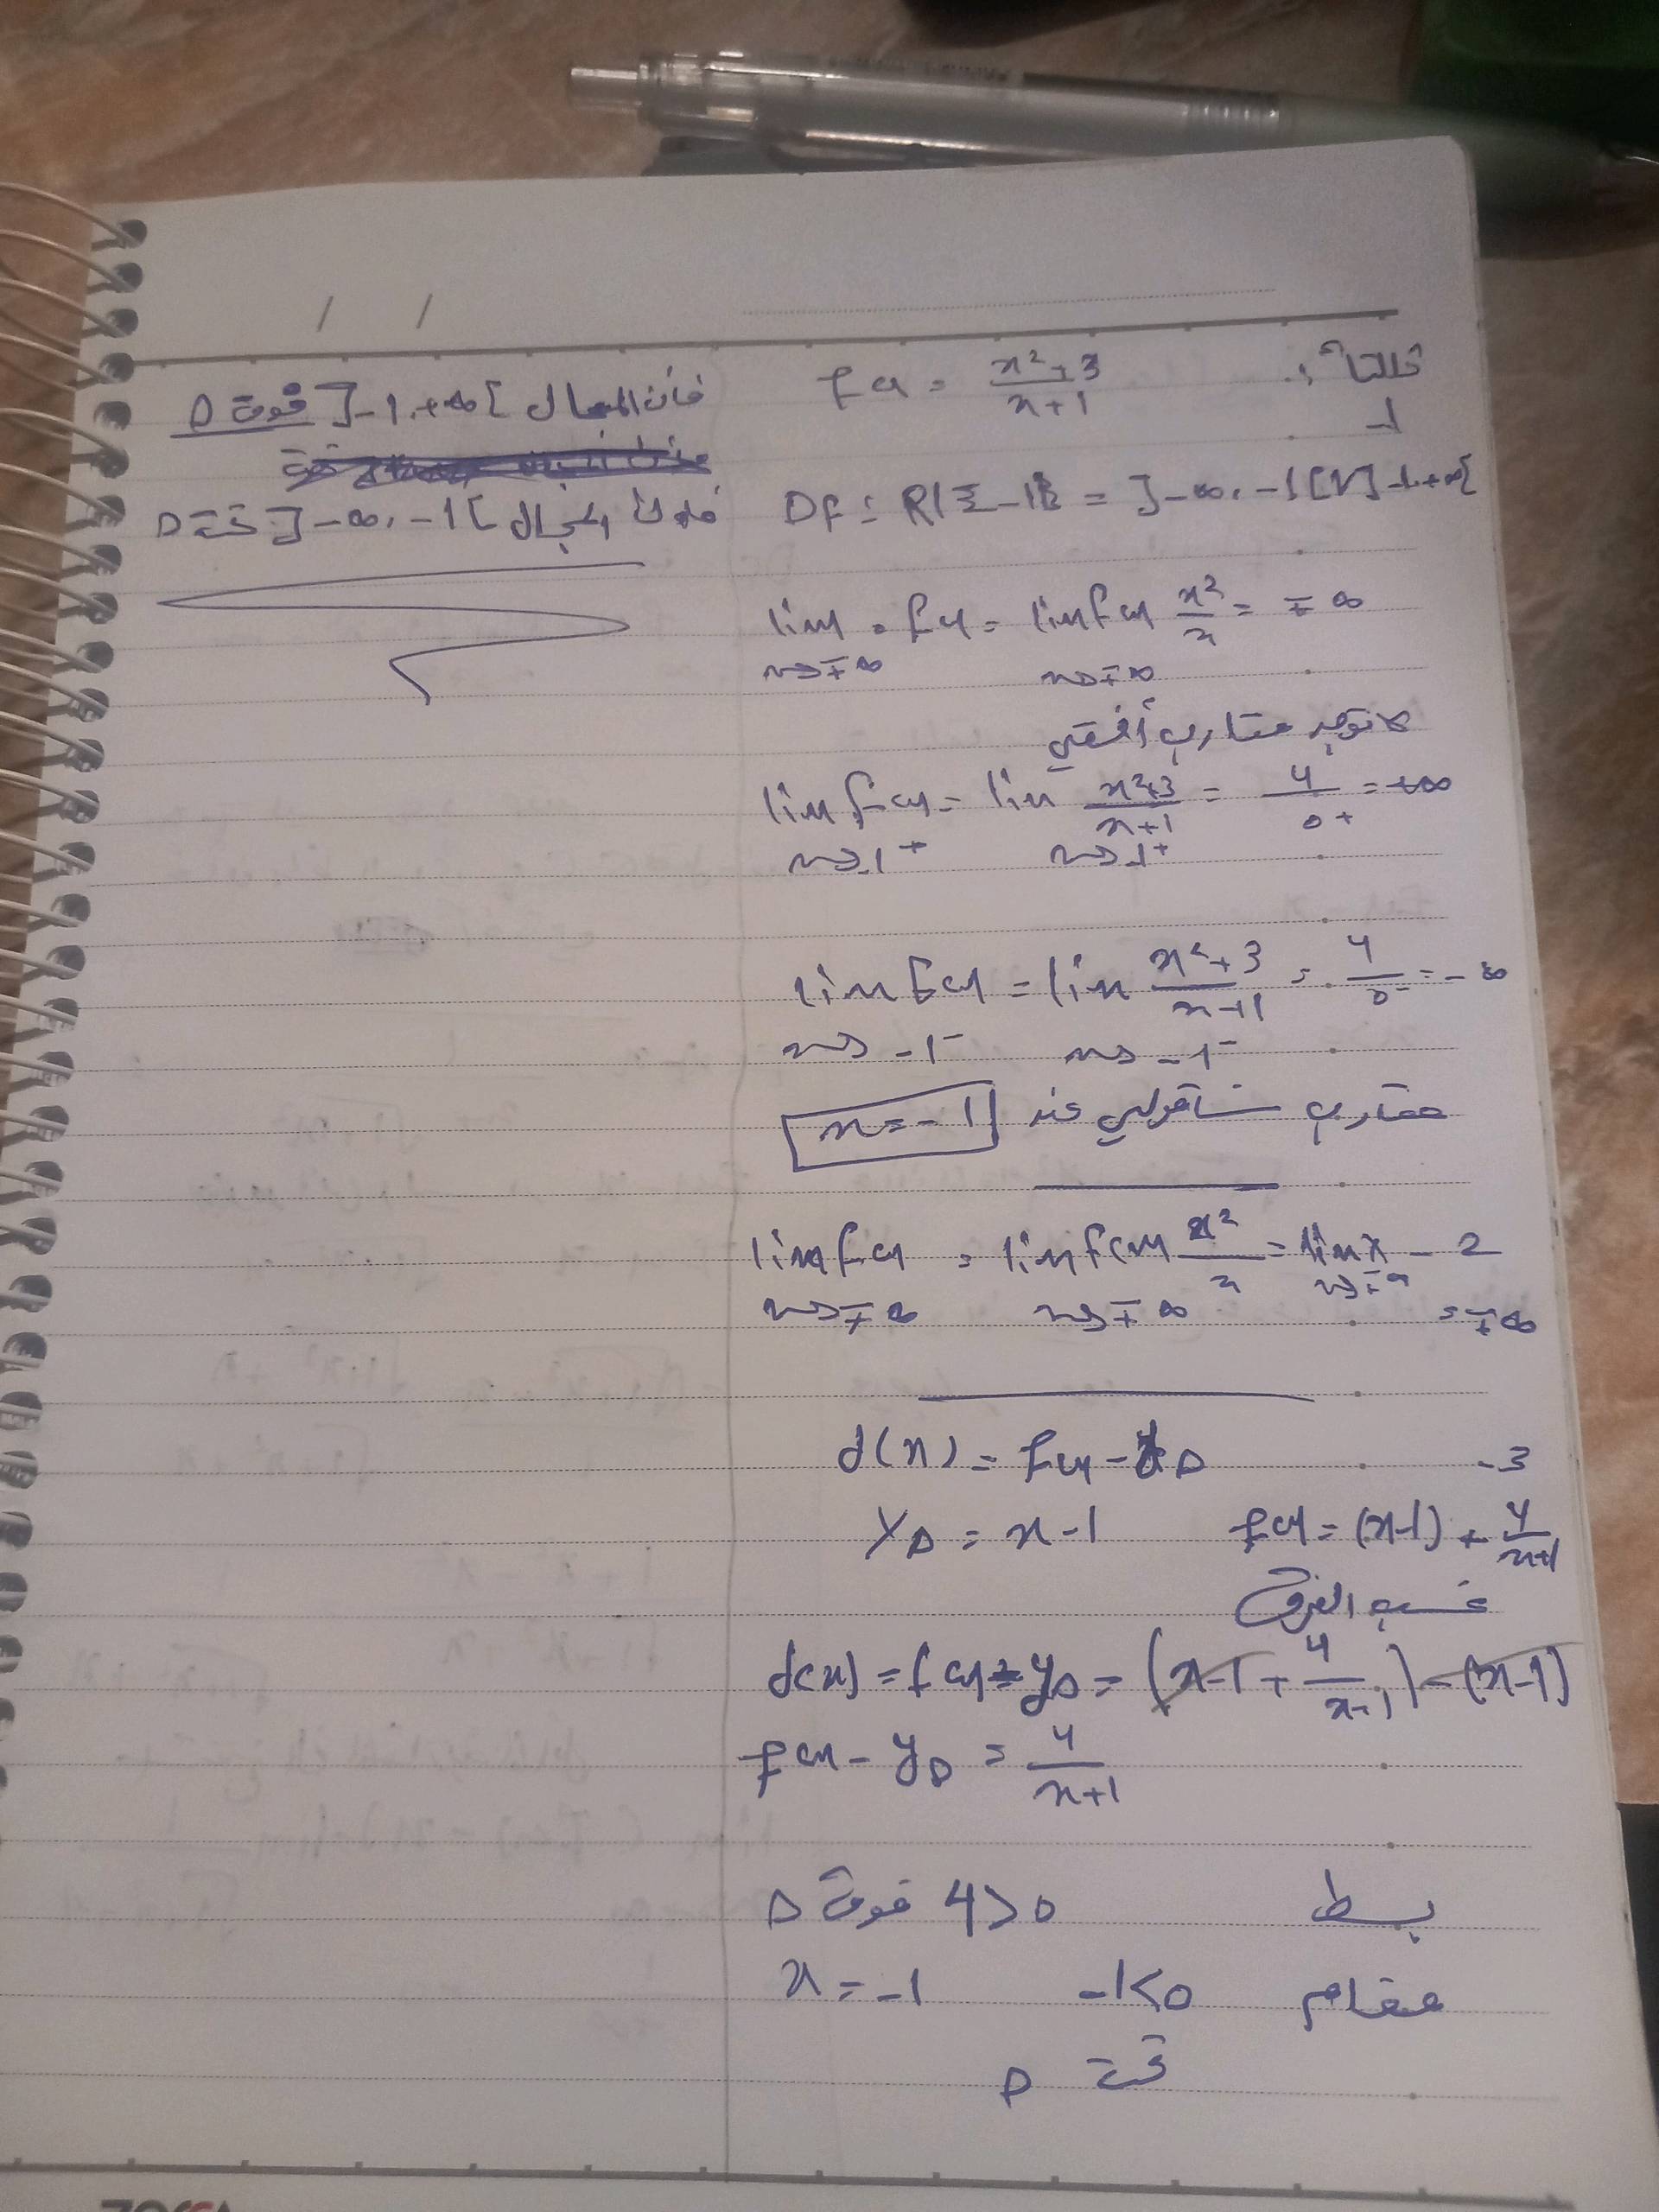 ثالثاً:
f(x) = x²+3 / x+1
1-
Df = R\{-1} = ]-∞, -1[ ∪ ]-1, +∞[
lim f(x) = lim f(x) x²/x = ∓∞
x→∓∞ x→∓∞
لا توجد مقارب أفقي
lim f(x) = lim x²+3 / x+1 = 4/0+ = +∞
x→-1+ x→-1+
lim f(x) = lim x²+3 / x+1 = 4/0- = -∞
x→-1- x→-1-
مقارب شاقولي عند x=-1
lim f(x) = lim f(x) x²/x = lim x -2
x→∓∞ x→∓∞ x→∓∞ = ∓∞
d(x) = f(x) - y∆ -3
y∆ = x-1 f(x) = (x-1) + 4/x+1
نحسب الفرق
d(x) = f(x) - y∆ = (x-1 + 4/x+1) - (x-1)
f(x) - y∆ = 4/x+1
بسط 4>0 فوق ∆
مقام -1<0 x=-1
تحت ∆
فإن المجال ]-1, +∞[ فوق ∆
فإن المجال ]-∞, -1[ تحت ∆